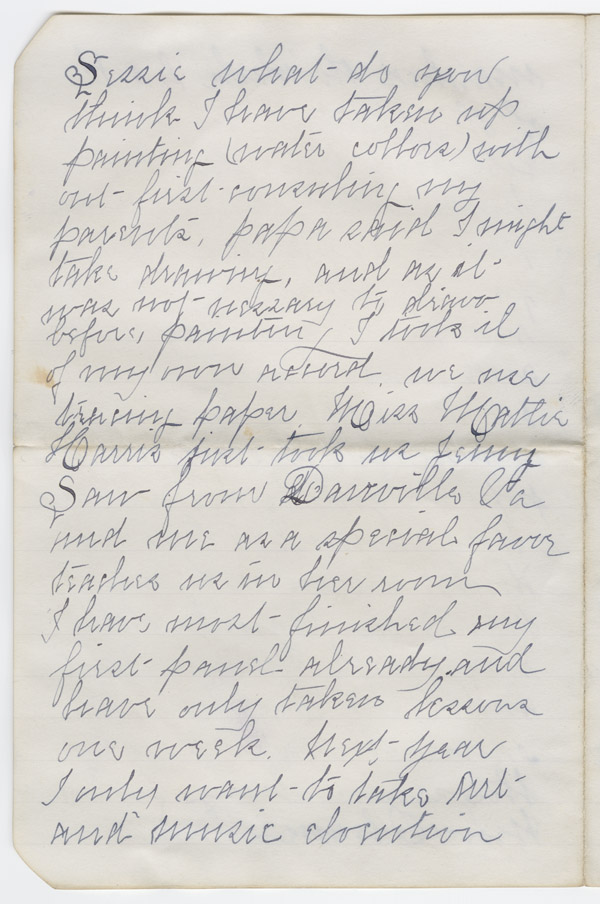 Bessie what do you
think I have taken up
painting (water collors) with
out first consulting my
parents, papa said I might
take drawing, and as it
was not nessary to draw
before, painting, I took it
of my own accord. we use
tracing paper. Miss Mattie
Harris just took us Jenny
Saw from Danville Va
and me as a special favor
teaches us in her room
I have most finished my
first panel already, and
have only taken lessons
one week. Next year
I only want to take Art
and music elocution